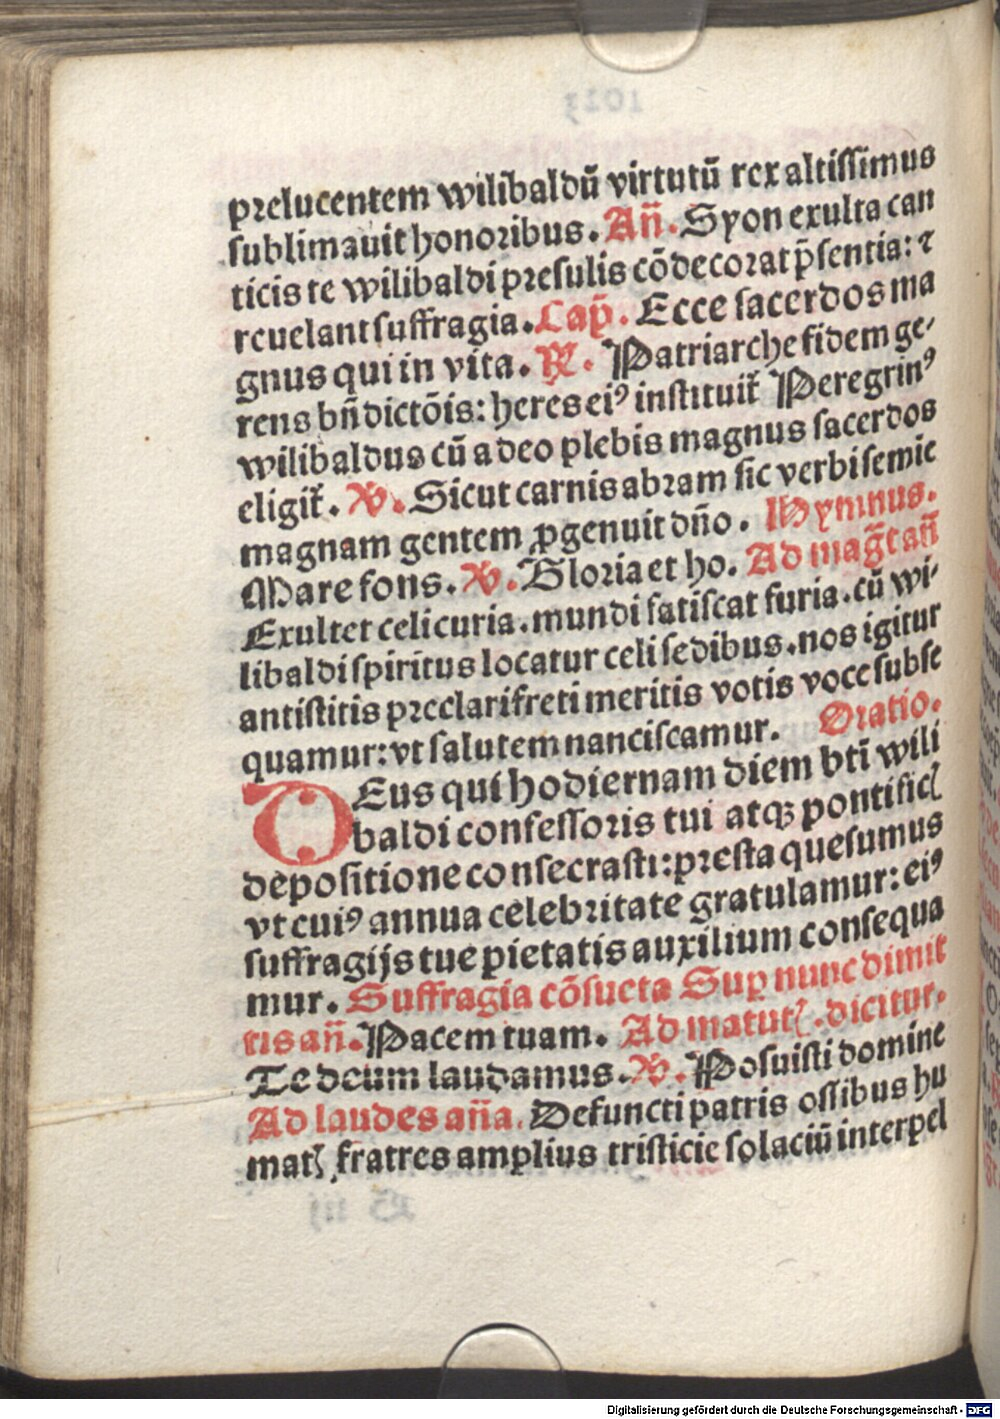 prelucentem wilibaldū virtutū rex altissimus
sublimauit honoribus. Añ. Syon exulta can
ticis te wilibaldi presulis cōdecorat p̄sentia: ⁊
reuelant suffragia. Cap̄. Ecce sacerdos ma
gnus qui in vita. ℟. Patriarche fidem ge⸗
rens bñdictōis: heres eiꝰ instituit᷑ Peregrinꝰ
wilibaldus cū a deo plebis magnus sacerdos
eligit᷑. ℣. Sicut carnis abram sic verbi semie
magnam gentem ꝓgenuit dño. Hymnus.
Mare fons. ℣. Gloria et ho. Ad mag̅t añ
Exultet celi curia. mundi satiscat furia. cū wi⸗
libaldi spiritus locatur celi sedibus. nos igitur
antistitis preclari freti meritis votis voce subse
quamur: vt salutem nanciscamur. Oratio.
DEus qui hodiernam diem bti̅ wili
baldi confessoris tui atqꝫ pontificꝭ
depositione consecrasti: presta quesumus
vt cuiꝰ annua celebritate gratulamur: eiꝰ
suffragijs tue pietatis auxilium consequa
mur. Suffragia cōsueta Suꝑ nunc dimit
tis añ. Pacem tuam. Ad matutꝭ. dicitur.
Te deum laudamus. ℣. Posuisti domine
Ad laudes aña. Defuncti patris ossibus hu
matꝭ fratres amplius tristicie solaciū interpel
Digitalisierung gefördert durch die Deutsche Forschungsgemeinschaft - DFG